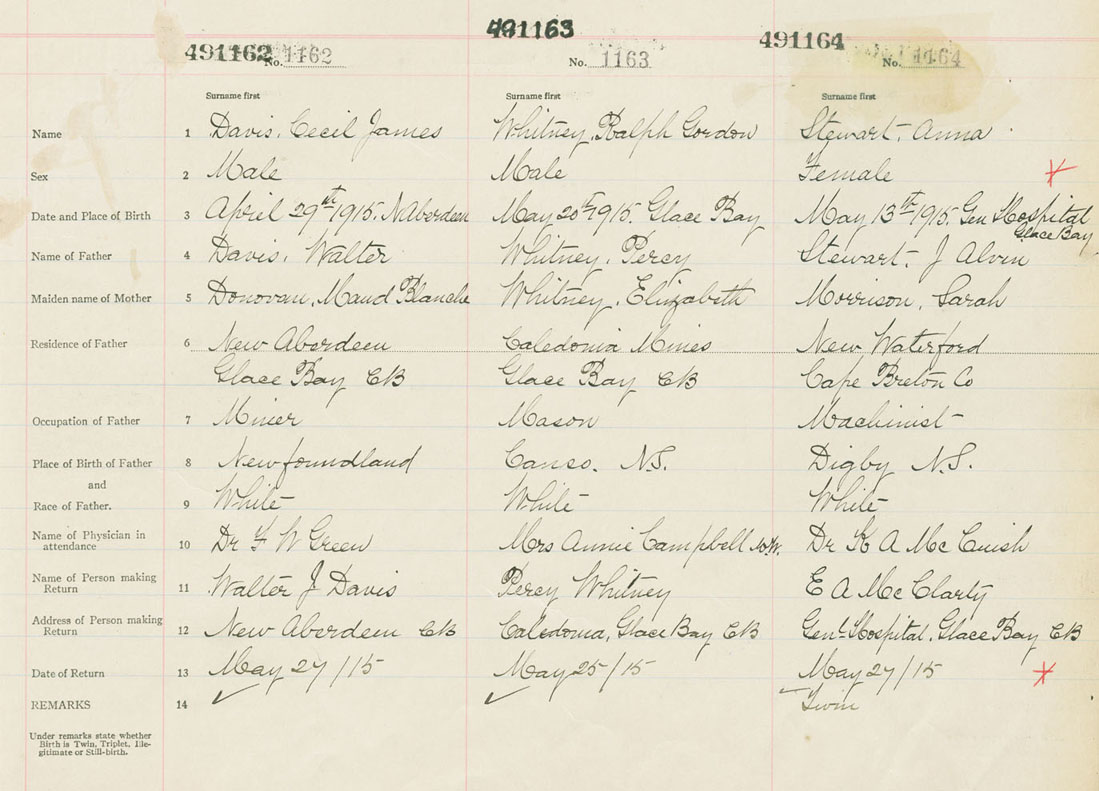 491162 No. 1162 491163 No. 1163 491164 No. 1164
Surname first Surname first Surname first
Name 1 Davis, Cecil James Whitney, Ralph Gordon Stewart, Anna
Sex 2 Male Male Female
Date and Place of Birth 3 April 29th 1915. N Aberdeen May 20th 1915. Glace Bay May 13th 1915. Gen Hospital
Glace Bay
Name of Father 4 Davis, Walter Whitney, Percy Stewart, J Alvin
Maiden name of Mother 5 Donovan, Maud Blanche Whitney, Elizabeth Morrison, Sarah
Residence of Father 6 New Aberdeen Caledonia Mines New Waterford
Glace Bay CB Glace Bay CB Cape Breton Co
Occupation of Father 7 Miner Mason Machinist
Place of Birth of Father 8 Newfoundland Canso. N.S. Digby N.S.
and
Race of Father. 9 White White White
Name of Physician in
attendance 10 Dr F W Green Mrs Annie Campbell Dr K A McCuish
Name of Person making
Return 11 Walter J Davis Percy Whitney E A McClarty
Address of Person making
Return 12 New Aberdeen CB Caledonia, Glace Bay CB Genl Hospital, Glace Bay CB
Date of Return 13 May 27/15 May 25/15 May 27/15
REMARKS 14 Twin
Under remarks state whether
Birth is Twin, Triplet, Ille-
gitimate or Still-birth.